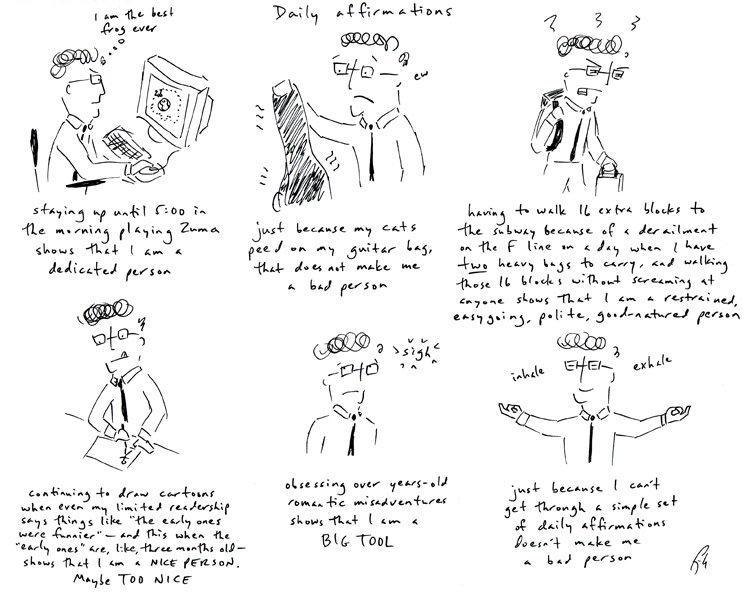 Daily affirmations
I am the best
frog ever
staying up until 5:00 in
the morning playing Zuma
shows that I am a
dedicated person
ew
just because my cats
peed on my guitar bag,
that does not make me
a bad person
having to walk 16 extra blocks to
the subway because of a derailment
on the F line on a day when I have
two heavy bags to carry, and walking
those 16 blocks without screaming at
anyone shows that I am a restrained,
easygoing, polite, good-natured person
continuing to draw cartoons
when even my limited readership
says things like "the early ones
were funnier" — and this when the
"early ones" are, like, three months old —
shows that I am a NICE PERSON.
Maybe TOO NICE
sigh
obsessing over years-old
romantic misadventures
shows that I am a
BIG TOOL
inhale
exhale
just because I can't
get through a simple set
of daily affirmations
doesn't make me
a bad person